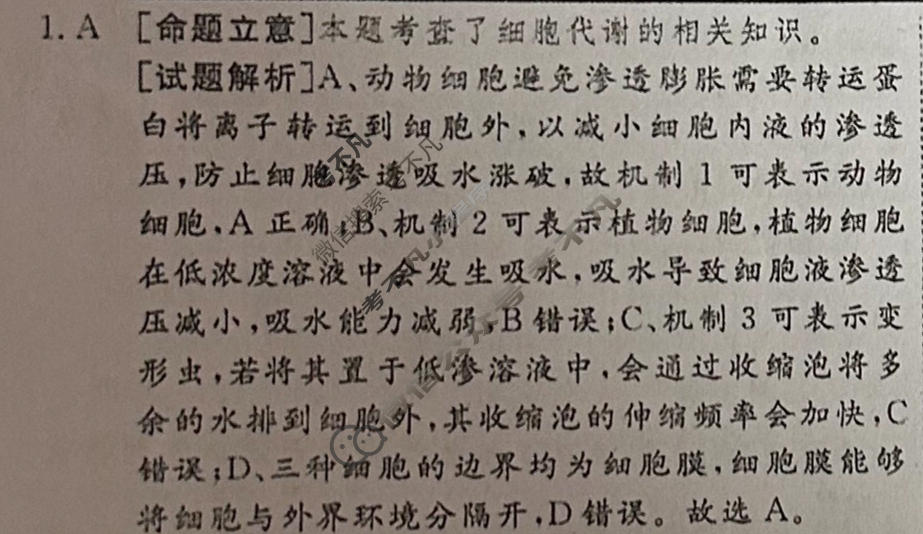 1. A [命题立意]本题考查了细胞代谢的相关知识。
[试题解析]A、动物细胞避免渗透膨胀需要转运蛋
白将离子转运到细胞外,以减小细胞内液的渗透
压,防止细胞渗透吸水涨破,故机制 1 可表示动物
细胞,A 正确;B、机制 2 可表示植物细胞,植物细胞
在低浓度溶液中会发生吸水,吸水导致细胞液渗透
压减小,吸水能力减弱,B 错误;C、机制 3 可表示变
形虫,若将其置于低渗溶液中,会通过收缩泡将多
余的水排到细胞外,其收缩泡的伸缩频率会加快,C
错误;D、三种细胞的边界均为细胞膜,细胞膜能够
将细胞与外界环境分隔开,D 错误。故选 A。
微信搜索
考不凡